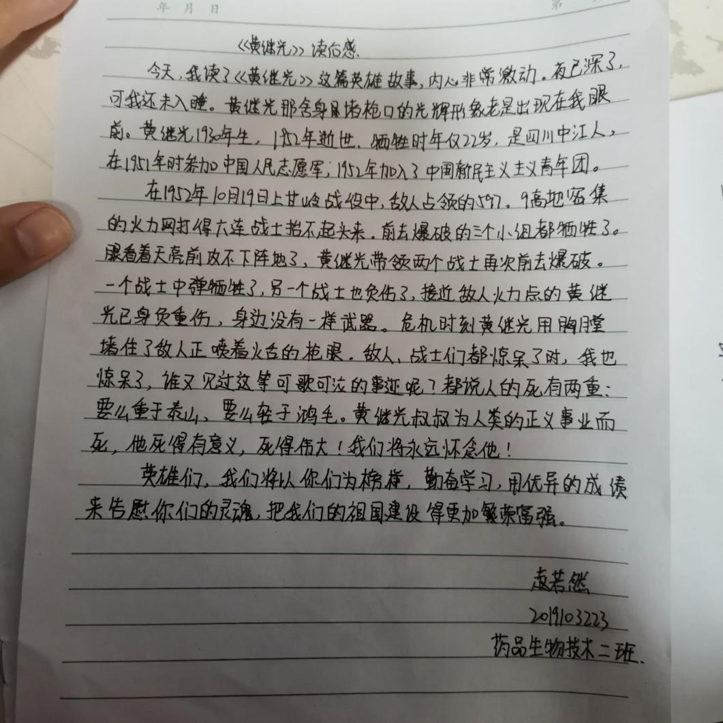 年 月 日
第
《黄继光》读后感.
今天,我读了《黄继光》这篇英雄故事,内心非常激动。夜已深了,
可我还未入睡。黄继光那舍身堵枪口的光辉形象老是出现在我眼
前。黄继光1930年生,1952年逝世,牺牲时年仅22岁,是四川中江人,
在1951年时参加中国人民志愿军;1952年加入了中国新民主义主义青年团。
在1952年10月19日上甘岭战役中,敌人占领的597.9高地密集
的火力网打得大连战士抬不起头来,前去爆破的三个小组都牺牲了。
眼看着天亮前攻不下阵地了,黄继光带领两个战士再次前去爆破。
一个战士中弹牺牲了,另一个战士也负伤了,接近敌人火力点的黄继
光已身负重伤,身边没有一样武器。危机时刻黄继光用胸膛
堵住了敌人正喷着火舌的枪眼。敌人、战士们都惊呆了时,我也
惊呆了,谁又见过这等可歌可泣的事迹呢?都说人的死有两重:
要么重于泰山、要么轻于鸿毛。黄继光叔叔为人类的正义事业而
死,他死得有意义,死得伟大!我们将永远怀念他!
英雄们,我们将以你们为榜样,勤奋学习,用优异的成绩
来告慰你们的灵魂,把我们的祖国建设得更加繁荣富强。
袁若然
2019103223
药品生物技术二班.